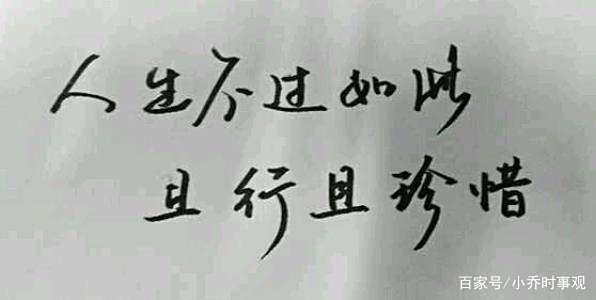 人生不过如此
且行且珍惜
百家号/小乔时事观